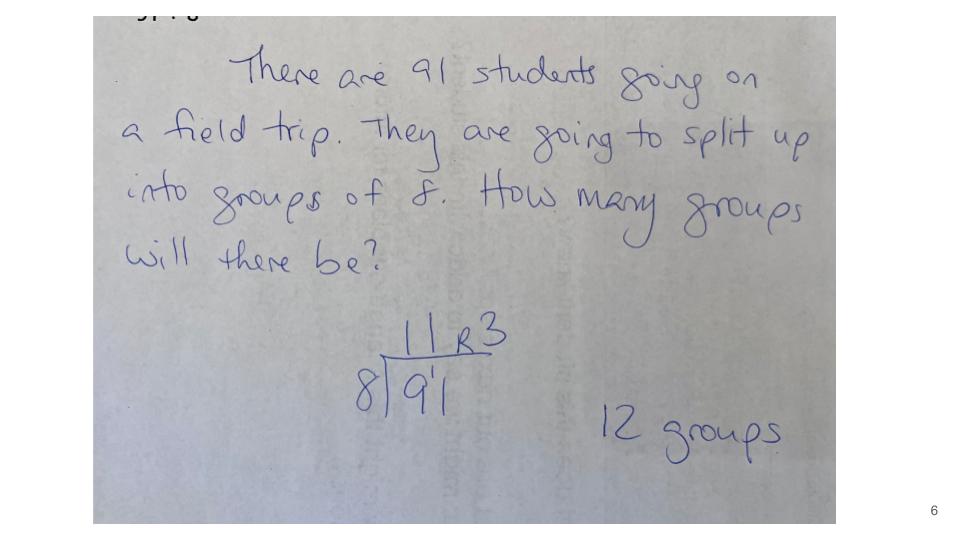 There are 91 students going on
a field trip. They are going to split up
into groups of 8. How many groups
will there be?
11 R3
8 9'1
12 groups
6